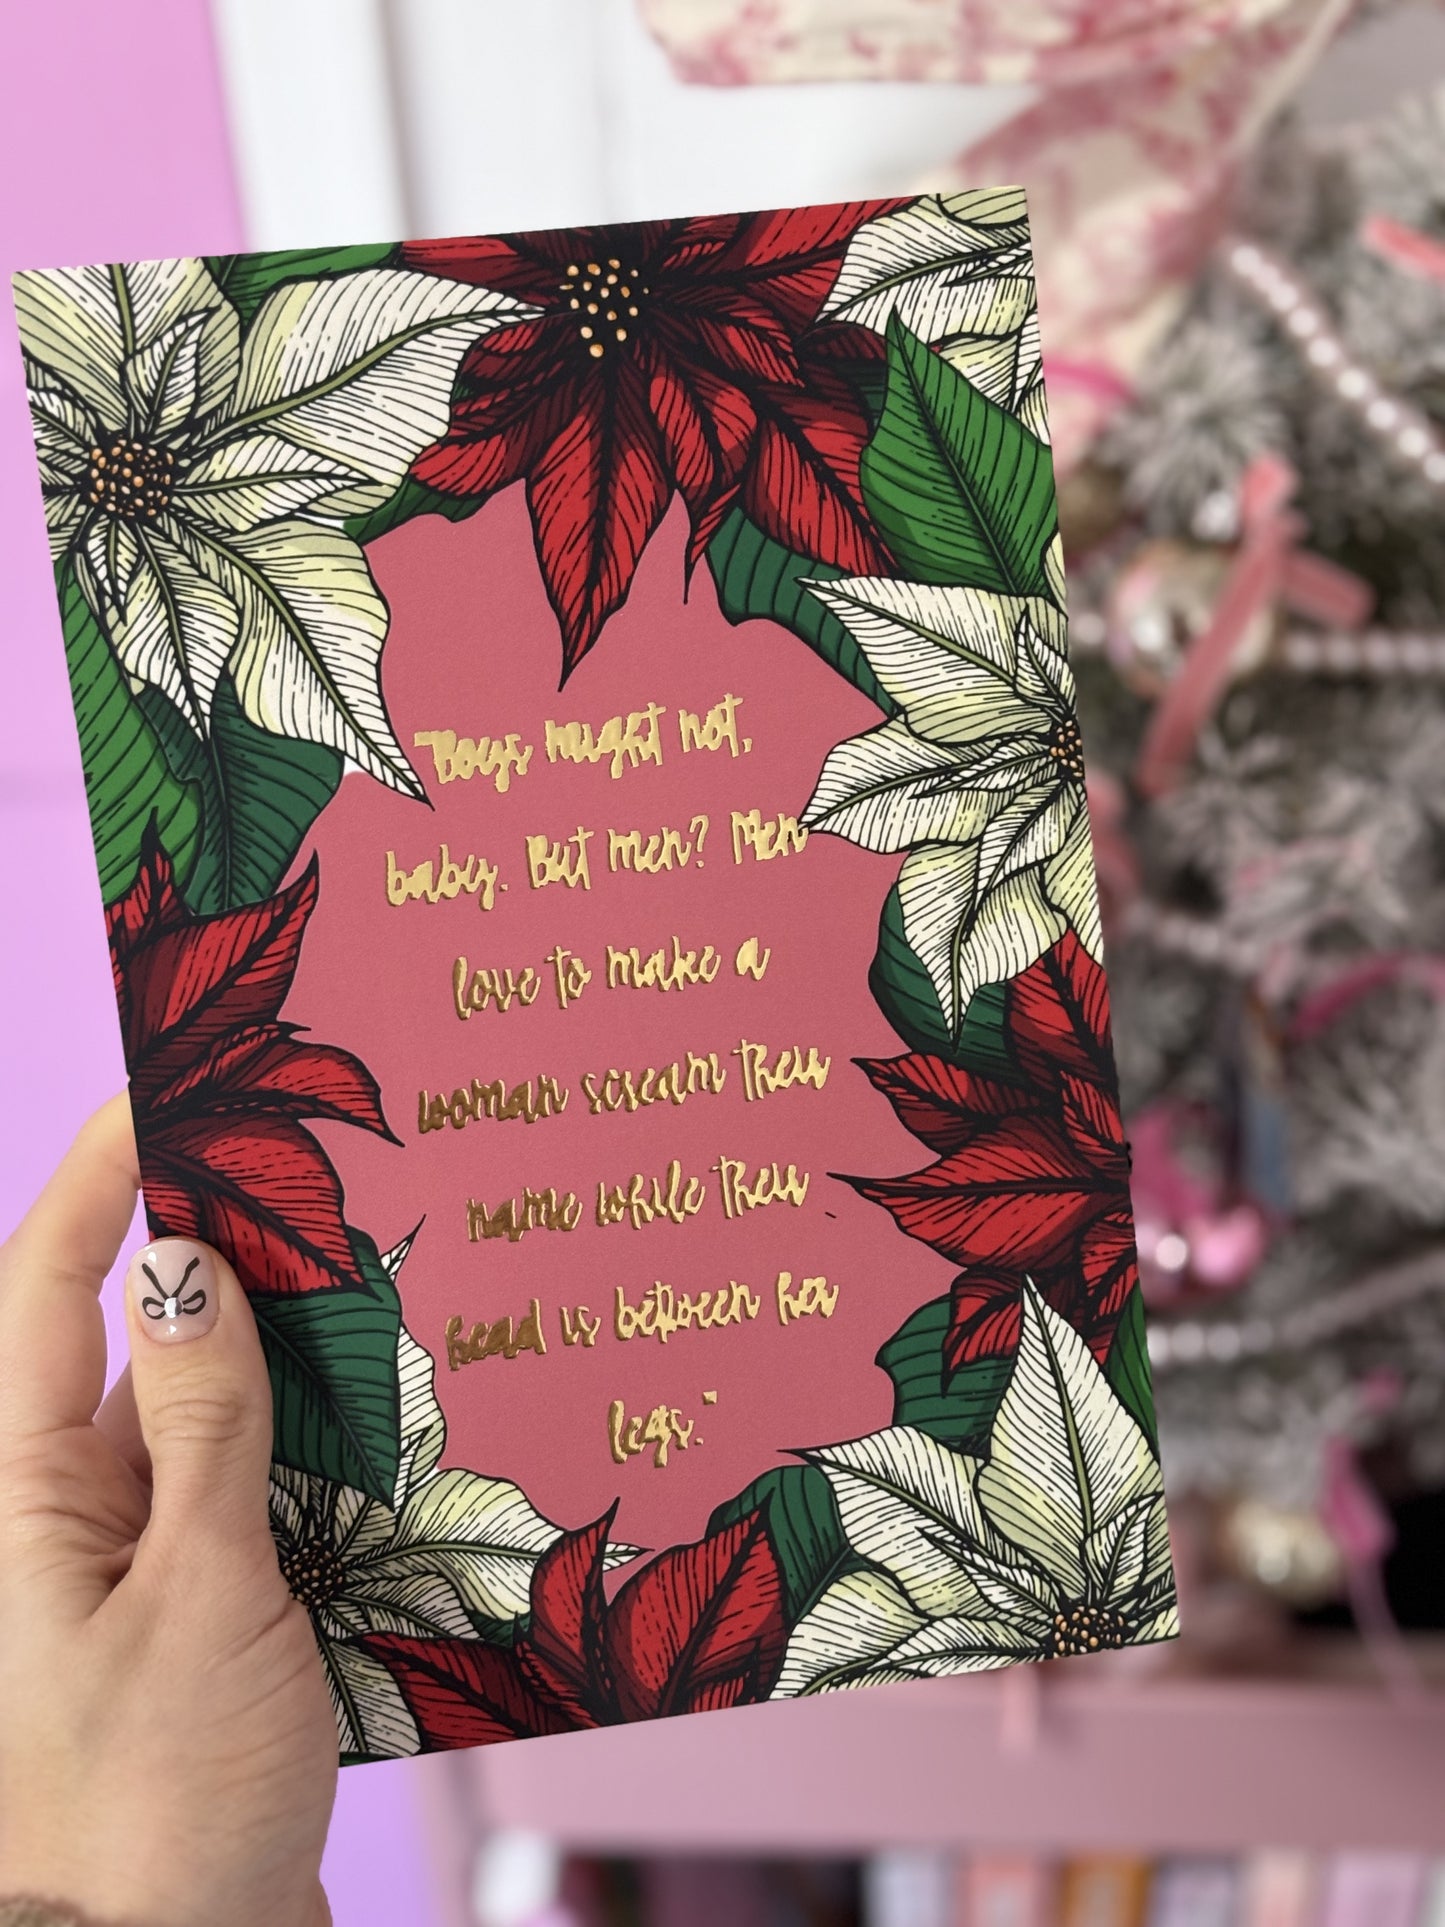 "Boys might not,
baby. But men? Men
love to make a
woman scream their
name while their
head is between her
legs."